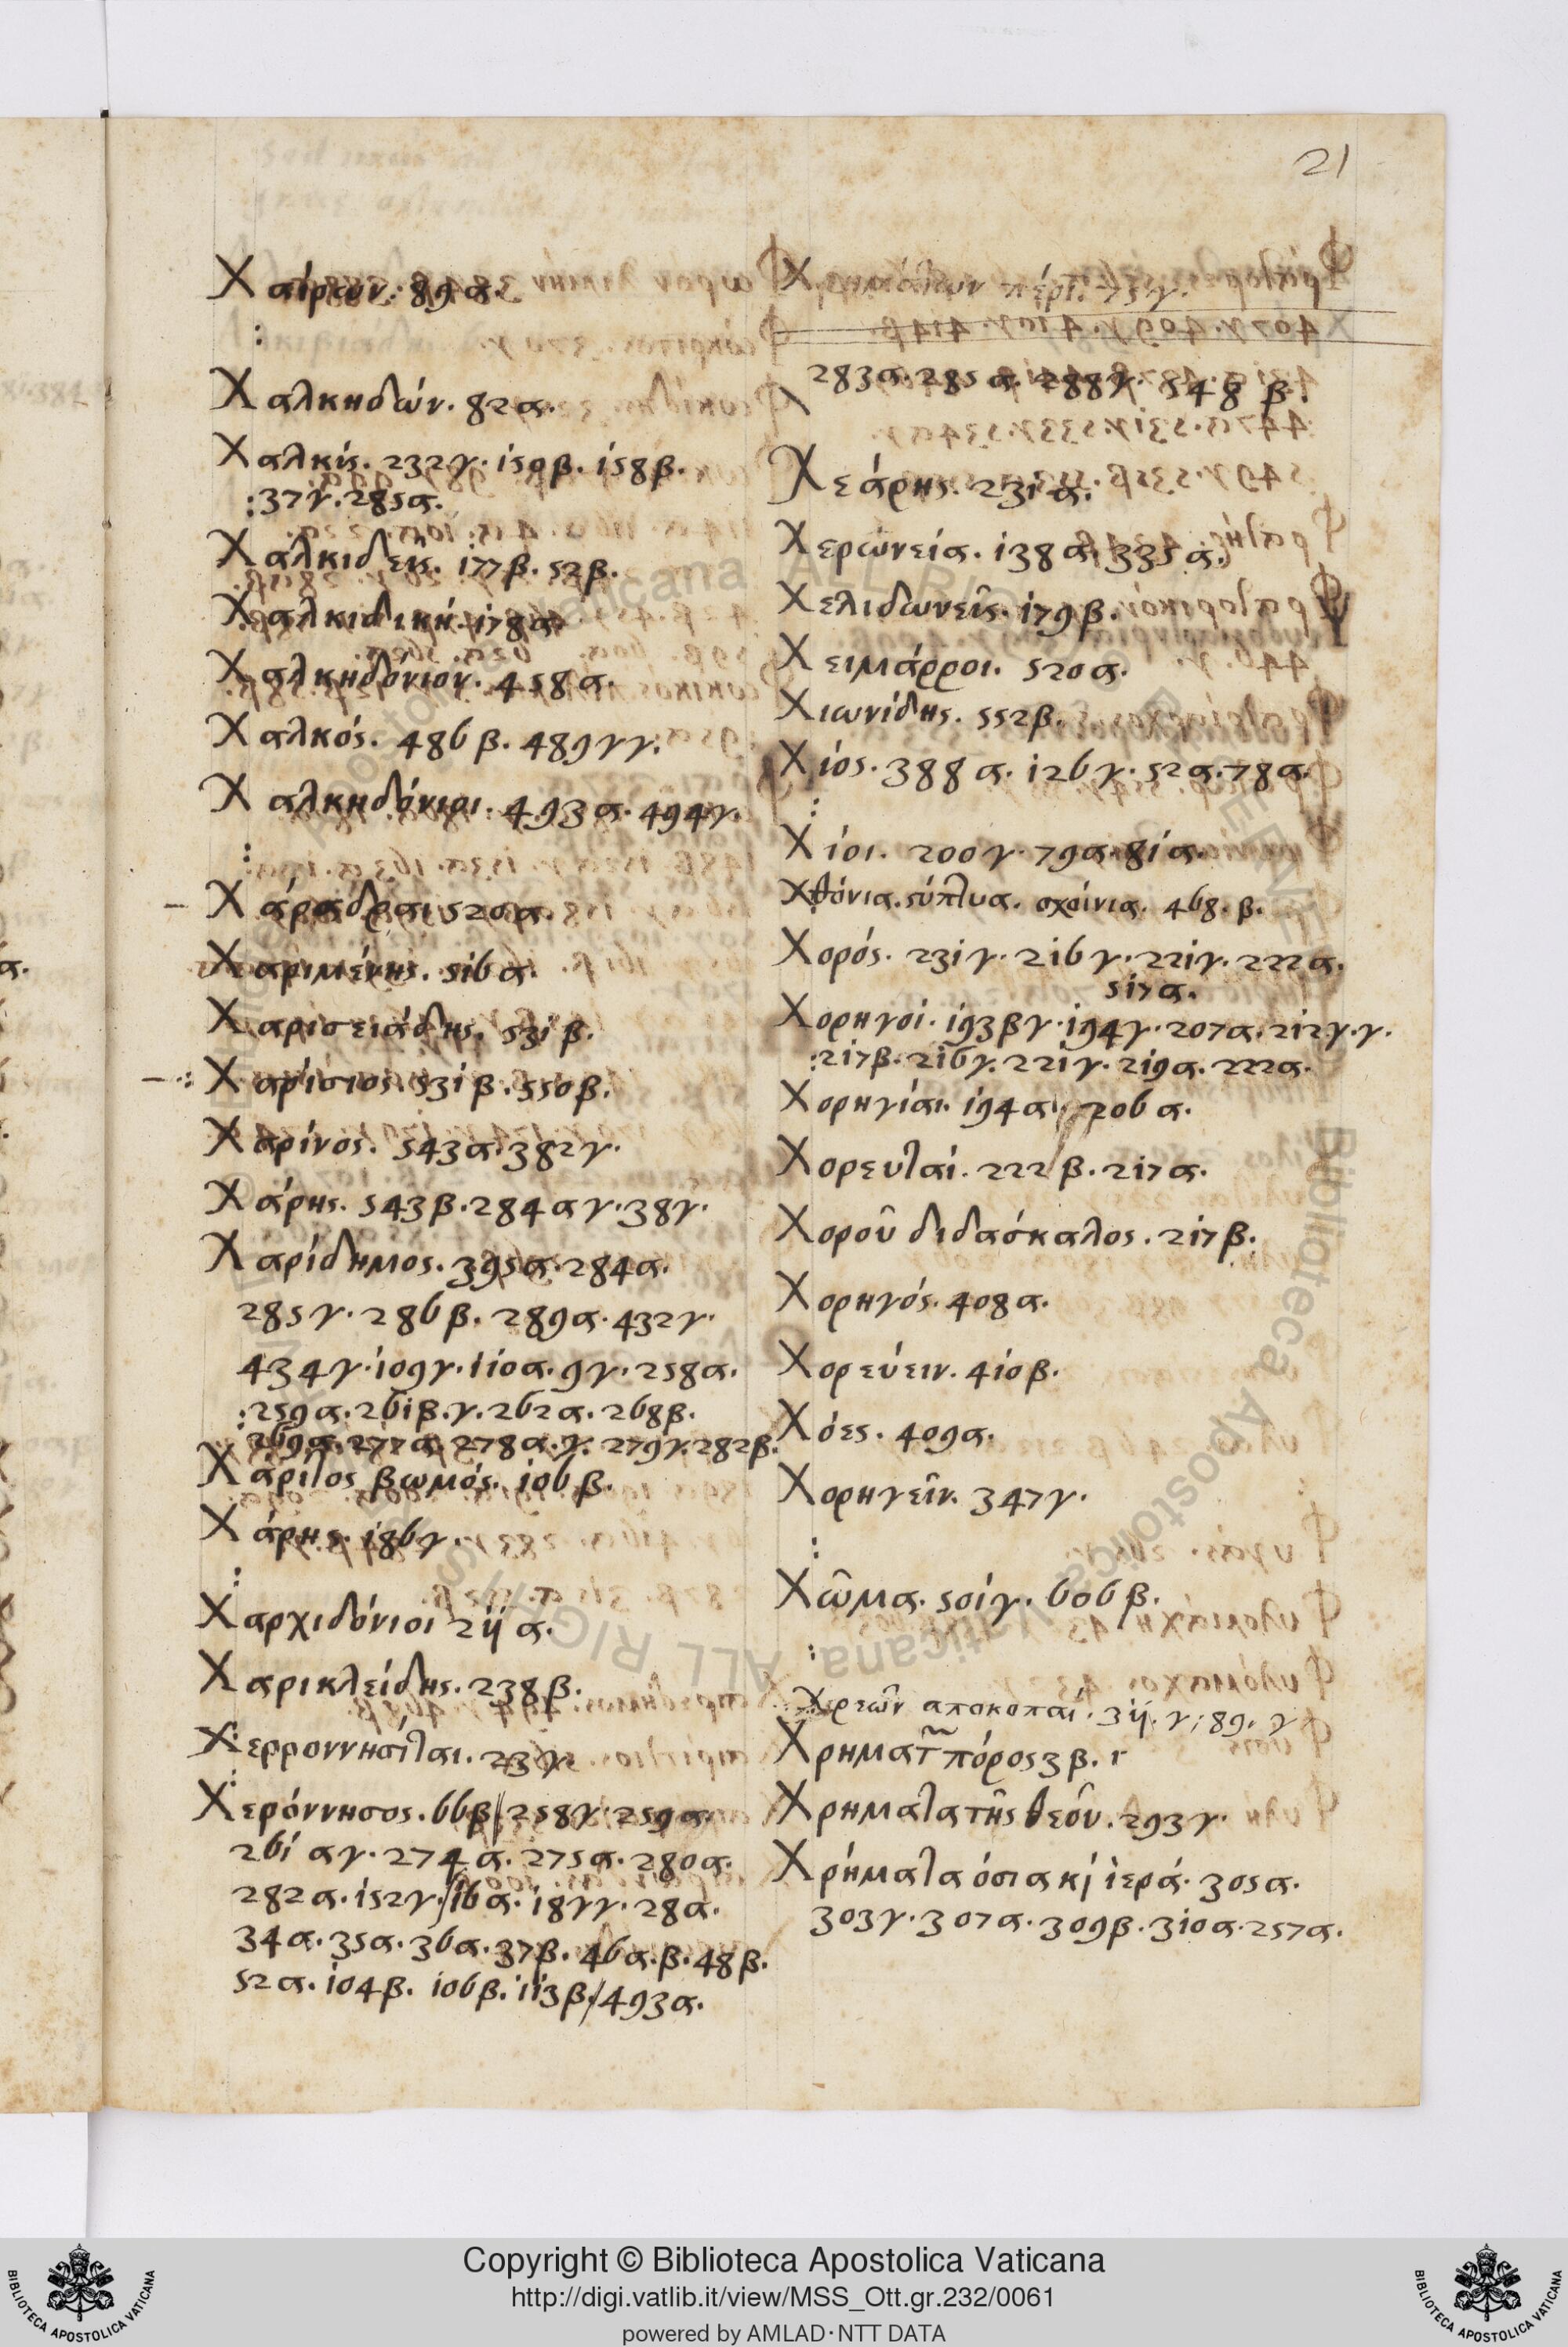 21
Χαίρων. 89α.
Χαλκηδών. 82α.
Χαλκίς. 232γ. 150β. 158β.
:37γ. 285α.
Χαλκιδεῖς. 177β. 52β.
Χαλκιδική. 178α.
Χαλκηδόνιον. 458α.
Χαλκός. 486β. 489γγ.
Χαλκηδόνιοι. 493α. 494γ.
Χάραδραι 520α.
Χαριμένης. 516α.
Χαρισειάδης. 531β.
Χαρίσιος. 531β. 550β.
Χαρίνος. 543α. 382γ.
Χάρης. 543β. 284αγ. 38γ.
Χαρίδημος. 395α. 284α.
285γ. 286β. 289α. 432γ.
434γ. 109γ. 110α. 9γ. 258α.
:259α. 261β.γ. 262α. 268β.
269α. 277α. 278α.γ. 279γ. 282β.
Χάριτος βωμός. 106β.
Χάρης. 186γ.
Χαρχιδόνιοι 211α.
Χαρικλείδης. 238β.
Χερροννησίται. 23γ.
Χερόννησος. 66β 258γ. 259α.
261αγ. 274α. 275α. 280α.
282α. 152γ. 16α. 18γγ. 28α.
34α. 35α. 36α. 37β. 46α.β. 48β.
52α. 104β. 106β. 113β. 493α.
Χρημάτων
283α. 285α. 288γ. 548β.
Χεάρης. 231α.
Χερωνεία. 138α. 335α.
Χελιδωνεῖς. 179β.
Χειμάρροι. 520α.
Χιωνίδης. 552β.
Χίος. 388α. 126γ. 52α. 78α.
Χίοι. 200γ. 79α. 81α.
Χθόνια. σχοίνια. 468.β.
Χορός. 231γ. 216γ. 221γ. 222α.
517α.
Χορηγοί. 193βγ. 194γ. 207α. 212γ.γ.
:217β. 216γ. 221γ. 219α. 222α.
Χορηγίαι. 194α. 206α.
Χορευταί. 222β. 217α.
Χοροῦ διδάσκαλος. 217β.
Χορηγός. 408α.
Χορεύειν. 410β.
Χόες. 409α.
Χορηγεῖν. 347γ.
Χῶμα. 501γ. 606β.
Χρεῶν αποκοπαί. 311.γ; 89.γ
Χρηματ͂ πόρος 3β.
Χρήματα τῆς θεοῦ. 293γ.
Χρήματα όσια κ̀ ἱερά. 305α.
303γ. 307α. 309β. 310α. 257α.
Copyright © Biblioteca Apostolica Vaticana
http://digi.vatlib.it/view/MSS_Ott.gr.232/0061
powered by AMLAD·NTT DATA